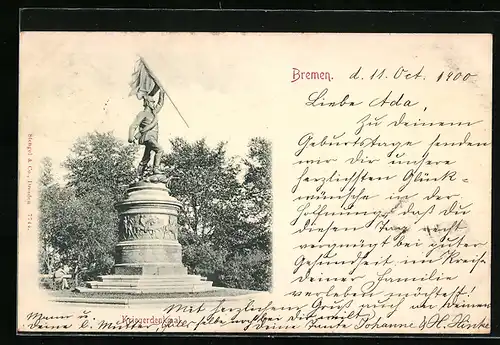 Bremen. d. 11. Oct. 1900
Liebe Ada,
Zu Deinem
Geburtstage senden
wir Dir unsere
herzlichsten Glück-
wünsche in der
Hoffnung, daß Du
diesen Tag recht
vergnügt bei guter
Gesundheit im Kreise
Deiner Familie
verleben möchtest!
Mit herzlichem Gruß auch an Deinen
Mann u. Kriegerdenkmal.
deine l. Mutter
Deine Tante Johanne & H.
Stengel & Co., Dresden